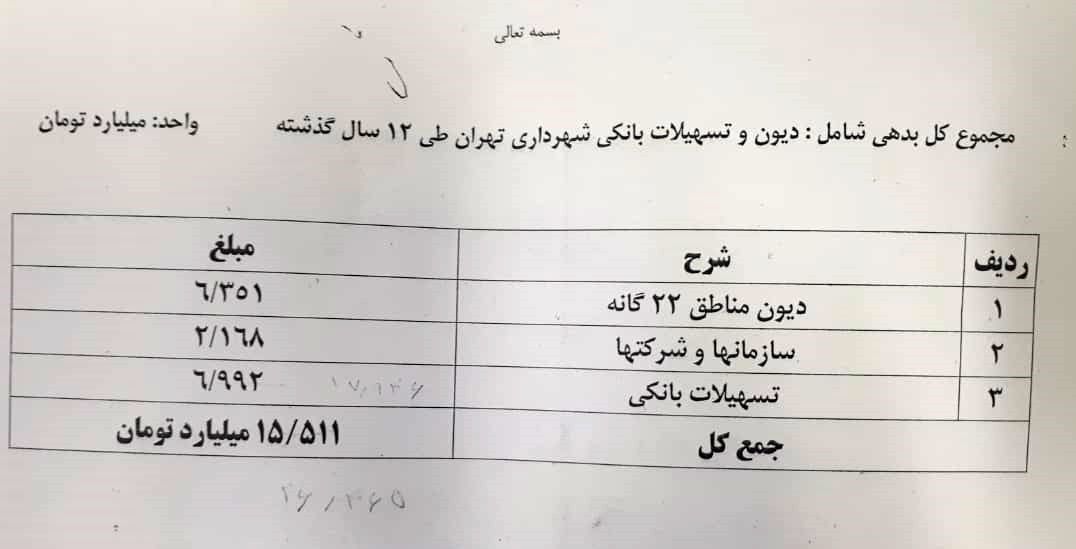 بسمه تعالی
مجموع کل بدهی شامل : دیون و تسهیلات بانکی شهرداری تهران طی ۱۲ سال گذشته واحد: میلیارد تومان
ردیف شرح مبلغ
۱ دیون مناطق ۲۲ گانه ٦/۳٥۱
۲ سازمانها و شرکتها ۲/۱٦۸
۳ تسهیلات بانکی ٦/۹۹۲
جمع کل ۱۵/۵۱۱ میلیارد تومان